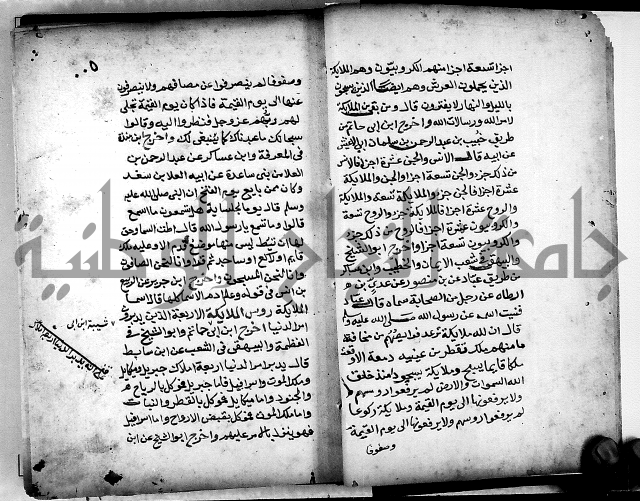 اجزا تسعة اجزا منهم الكروبيون وهم الملايكة
الذين يحملون العرش وهم ايضا الذين يسبحون
بالليل والنهار لا يفترون قال ومن بقي من الملايكة
لامر الله ورسالات الله واخرج ابن ابي حاتم من
طريق خبيب بن عبد الرحمن بن سلمان ابي الاعيس
عن ابيه قال الانس والجن عشرة اجزا فالانس
من ذلك جزء والجن تسعة اجزا والجن والملايكة
عشرة اجزا فالجن جزء والملايكة تسعة والملايكة
والروح عشرة اجزا فالملايكة جزء والروح تسعة
والروح والكروبيون عشرة اجزا فالروح من ذلك جزء
والكروبيون تسعة اجزا واخرج ابو الشيخ
والبيهقي في شعب الايمان والخطيب وابن عساكر
من طريق عباد بن منصور عن عدي بن
ارطاه عن رجل من الصحابة سماه قال عباد
فنسيت اسمه عن رسول الله صلى الله عليه وسلم
قال ان لله ملايكة ترعد فرايصهم من مخافته
ما منهم ملك تقطر من عينيه دمعة الا وقعت
ملكا قايما يسبح وملايكة سجودا منذ خلق
الله السموات والارض لم يرفعوا روسهم
ولا يرفعونها الى يوم القيمة وملايكة ركوعا
لم يرفعوا روسهم ولا يرفعونها الى يوم القيمة
وصفوفا
٥
وصفوفا لم ينصرفوا عن مصافهم ولا ينصرفون
عنها الى يوم القيمة فاذا كان يوم القيمة تجلى
لهم ربهم عز وجل فنظروا اليه وقالوا
سبحانك ما عبدناك كما ينبغي لك واخرج ابن مندة
في المعرفة وابن عساكر عن عبد الرحمن بن
العلا من بني ساعدة عن ابيه العلا بن سعد
وكان ممن بايع يوم الفتح ان النبي صلى الله عليه
وسلم قال يوما لجلسايه هل تسمعون ما اسمع
قالوا وما تسمع يا رسول الله قال اطت السما وحق
لها ان تئط ليس منها موضع قدم الا وعليه ملك
قايم او راكع او ساجد ثم قرا وانا لنحن الصافون
وانا لنحن المسبحون واخرج ابن جرير عن الربيع
بن انس في قوله وعلم ادم الاسما كلها قال اسما
الملايكة روس الملايكة الاربعة الذين يدبرون
امر الدنيا اخرج ابن ابي حاتم وابو الشيخ في
العظمة والبيهقي في الشعب عن ابن سابط
قال يدبر امر الدنيا اربعة املاك جبريل وميكايل
وملك الموت واسرافيل فاما جبريل فوكل بالرياح
والجنود واما ميكايل فوكل بالقطر والنبات
واما ملك الموت فوكل بقبض الارواح واما اسرافيل
فهو ينزل بالامر عليهم واخرج ابو الشيخ عن ابن
شيبة ابن ابي
جامعة النجاح الوطنية